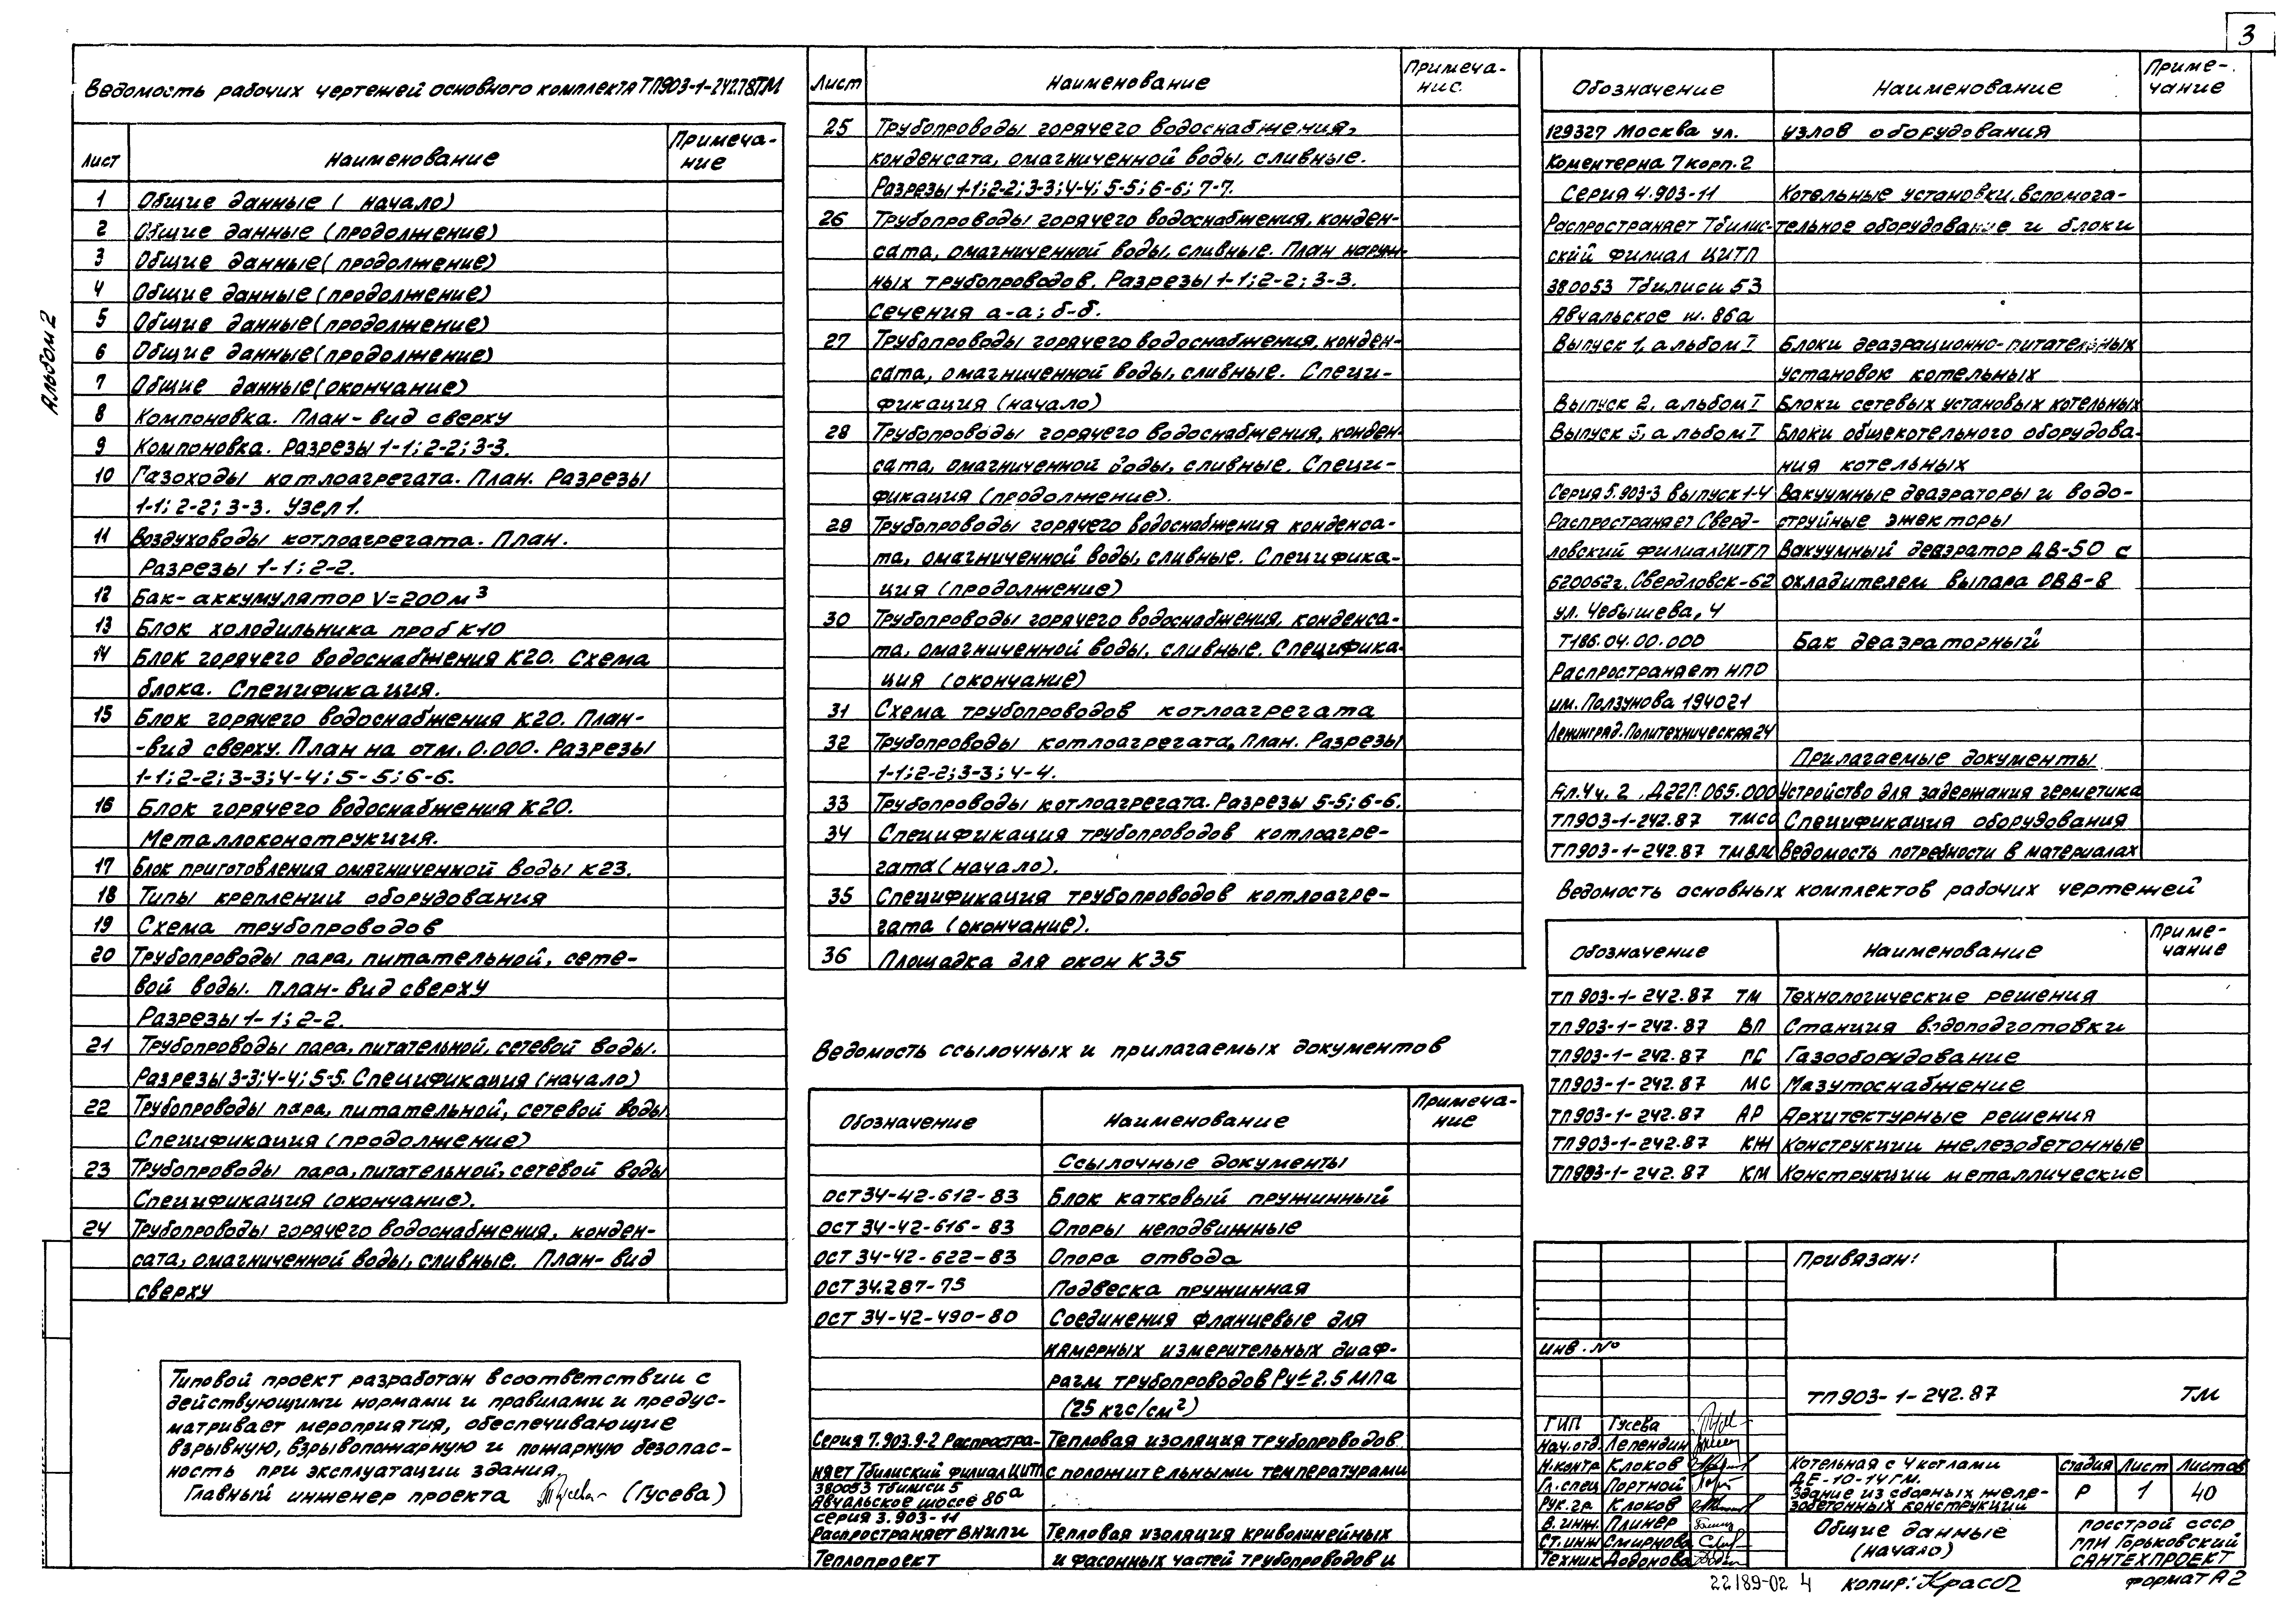 3
Альбом 2
Ведомость рабочих чертежей основного комплекта ТП903-1-242.78ТМ
Лист Наименование Примеча-
ние
1 Общие данные ( начало)
2 Общие данные (продолжение)
3 Общие данные (продолжение)
4 Общие данные (продолжение)
5 Общие данные (продолжение)
6 Общие данные (продолжение)
7 Общие данные (окончание)
8 Компоновка. План- вид сверху
9 Компоновка. Разрезы 1-1; 2-2; 3-3.
10 Газоходы котлоагрегата. План. Разрезы
1-1; 2-2; 3-3. Узел 1.
11 Воздуховоды котлоагрегата. План.
Разрезы 1-1; 2-2.
12 Бак- аккумулятор V=200м³
13 Блок холодильника проб К10
14 Блок горячего водоснабжения К20. Схема
блока. Спецификация.
15 Блок горячего водоснабжения К20. План-
-вид сверху. План на отм. 0.000. Разрезы
1-1; 2-2; 3-3; 4-4; 5-5; 6-6.
16 Блок горячего водоснабжения К20.
Металлоконструкция.
17 Блок приготовления омагниченной воды К23.
18 Типы креплений оборудования
19 Схема трубопроводов
20 Трубопроводы пара, питательной, сете-
вой воды. План- вид сверху
Разрезы 1-1; 2-2.
21 Трубопроводы пара, питательной, сетевой воды.
Разрезы 3-3; 4-4; 5-5. Спецификация (начало)
22 Трубопроводы пара, питательной, сетевой воды
Спецификация (продолжение)
23 Трубопроводы пара, питательной, сетевой воды
Спецификация (окончание).
24 Трубопроводы горячего водоснабжения, конден-
сата, омагниченной воды, сливные. План- вид
сверху
Типовой проект разработан в соответствии с
действующими нормами и правилами и предус-
матривает мероприятия, обеспечивающие
взрывную, взрывопожарную и пожарную безопас-
ность при эксплуатации здания.
Главный инженер проекта (Гусева)
Лист Наименование Примеча-
ние.
25 Трубопроводы горячего водоснабжения,
конденсата, омагниченной воды, сливные.
Разрезы 1-1; 2-2; 3-3; 4-4; 5-5; 6-6; 7-7.
26 Трубопроводы горячего водоснабжения, конден-
сата, омагниченной воды, сливные. План наруж-
ных трубопроводов. Разрезы 1-1; 2-2; 3-3.
Сечения а-а; б-б.
27 Трубопроводы горячего водоснабжения, конден-
сата, омагниченной воды, сливные. Специ-
фикация (начало)
28 Трубопроводы горячего водоснабжения, конден-
сата, омагниченной воды, сливные. Специ-
фикация (продолжение).
29 Трубопроводы горячего водоснабжения конденса-
та, омагниченной воды, сливные. Специфика-
ция (продолжение)
30 Трубопроводы горячего водоснабжения, конденса-
та, омагниченной воды, сливные. Специфика-
ция (окончание)
31 Схема трубопроводов котлоагрегата
32 Трубопроводы котлоагрегата, План. Разрезы
1-1; 2-2; 3-3; 4-4.
33 Трубопроводы котлоагрегата. Разрезы 5-5; 6-6.
34 Спецификация трубопроводов котлоагре-
гата (начало).
35 Спецификация трубопроводов котлоагре-
гата (окончание).
36 Площадка для окон К35
Ведомость ссылочных и прилагаемых документов
Обозначение Наименование Примеча-
ние
Ссылочные документы
ОСТ 34-42-612-83 Блок катковый пружинный
ОСТ 34-42-616-83 Опоры неподвижные
ОСТ 34-42-622-83 Опора отвода
ОСТ 34.287-75 Подвеска пружинная
ОСТ 34-42-490-80 Соединения фланцевые для
камерных измерительных диаф-
рагм трубопроводов Ру≤2.5 МПа
(25 кгс/см²)
Серия 7.903.9-2 Распростра- Тепловая изоляция трубопроводов
няет Тбилиский филиал ЦИТП с положительными температурами
380053 Тбилиси 5
Авчальское шоссе 86а
серия 3.903-11
Распространяет ВНИПИ Тепловая изоляция криволинейных
Теплопроект и фасонных частей трубопроводов и
Обозначение Наименование Приме-
чание
129327 Москва ул. узлов оборудования
Коментерна 7 корп. 2
Серия 4.903-11 Котельные установки, вспомога-
Распространяет Тбилис- тельное оборудование и блоки
ский филиал ЦИТП
380053 Тбилиси 53
Авчальское ш. 86а
Выпуск 1, альбом I Блоки деаэрационно-питательных
установок котельных
Выпуск 2, альбом I Блоки сетевых установых котельных
Выпуск 3, альбом I Блоки общекотельного оборудова-
ния котельных
Серия 5.903-3 выпуск 1-4 Вакуумные деаэраторы и водо-
Распространяет Сверд- струйные эжекторы
ловский филиал ЦИТП Вакуумный деаэратор ДВ-50 с
620062 г. Свердловск-62 охладителем выпара ОВВ-8
ул. Чебышева, 4
Т186.04.00.000 Бак деаэраторный
Распространяет НПО
им. Ползунова 194021
Ленинград. Политехническая 24
Прилагаемые документы
Ал.4 ч. 2 , Д22Г.065.000 Устройство для задержания герметика
ТП903-1-242.87 ТМСО Спецификация оборудования
ТП903-1-242.87 ТМВМ Ведомость потребности в материалах
Ведомость основных комплектов рабочих чертежей
Обозначение Наименование Приме-
чание
ТП 903-1-242.87 ТМ Технологические решения
ТП903-1-242.87 ВП Станция водоподготовки
ТП903-1-242.87 ГС Газооборудование
ТП903-1-242.87 МС Мазутоснабжение
ТП903-1-242.87 АР Архитектурные решения
ТП903-1-242.87 КЖ Конструкции железобетонные
ТП903-1-242.87 КМ Конструкции металлические
Привязан:
инв. №
ТП903-1-242.87 ТМ
ГИП Гусева
Нач. отд. Лепендин
Н.контр Клоков
Гл. спец Портной
Рук. гр. Клоков
В. инж. Плинер
Ст. инж Смирнова
Техник Додонова
Котельная с 4 котлами
ДЕ-10-14ГМ.
Здание из сборных желе-
зобетонных конструкций
стадия Лист Листов
Р 1 40
Общие данные
(начало)
Росстрой СССР
ГПИ Горьковский
САНТЕХПРОЕКТ
22189-02 4 копир: формат А2